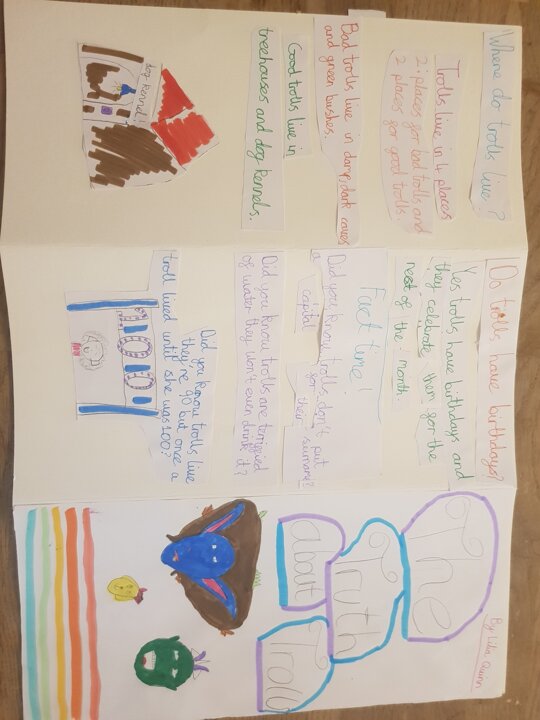 Where do trolls live?
Trolls live in 4 places
2 places for bad trolls and
2 places for good trolls.
Bad trolls live in damp, dark caves
and green bushes.
Good trolls live in
treehouses and dog kennels.
dog kennel
Do trolls have birthdays?
Yes trolls have birthdays and
they celebrate them for the
rest of the month.
Fact time!
Did you know trolls don't put
a capital for their
Did you know trolls are terrified
of water they won't even drink it?
Did you know trolls live
they're 90 but once a
troll lived until she was 100?
100
By Quinn
The
Truth
about
Trolls